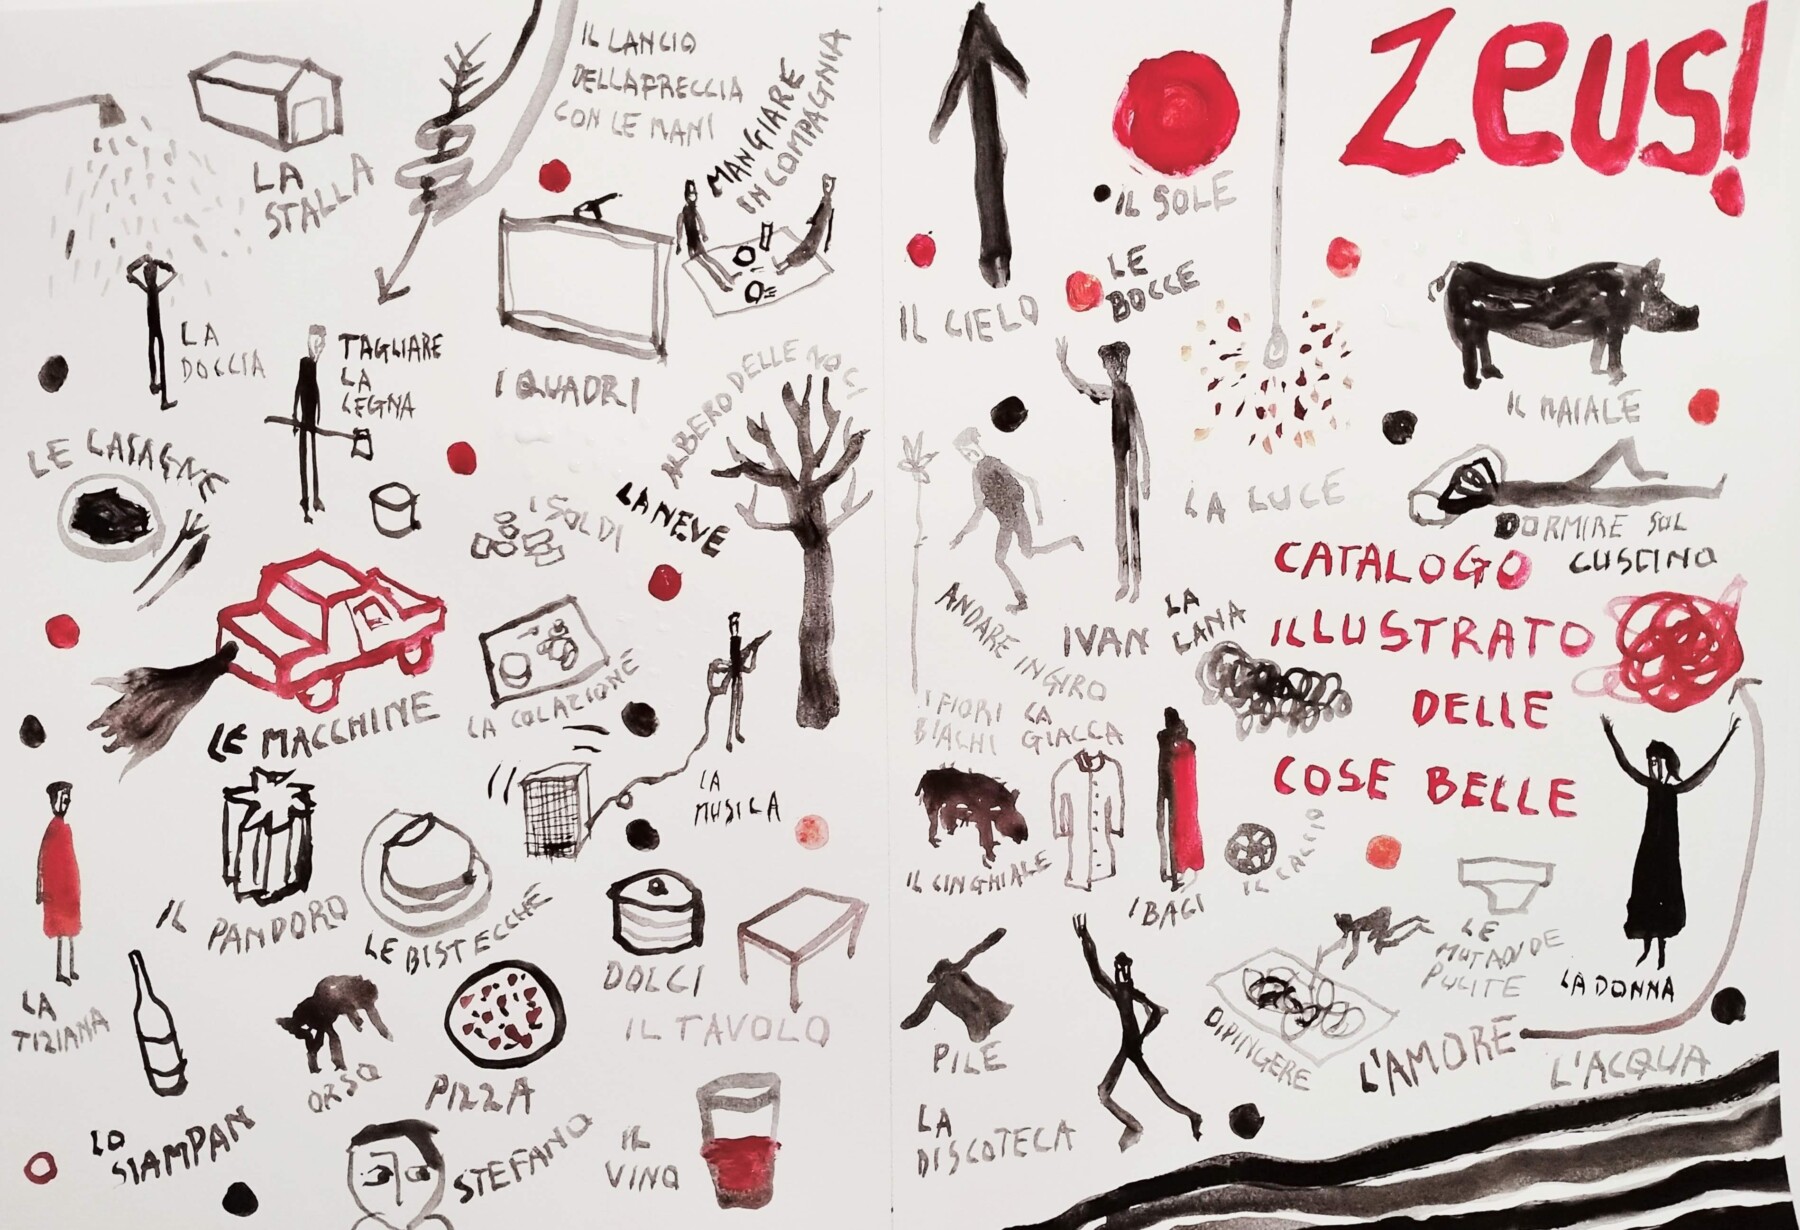 IL LANCIO
DELLA FRECCIA
CON LE MANI
MANGIARE
IN COMPAGNIA
LA
STALLA
LA
DOCCIA
TAGLIARE
LA
LEGNA
I QUADRI
ALBERO DELLE NOCI
LE LASAGNE
I SOLDI
LA NEVE
LE MACCHINE
LA COLAZIONE
LA
MUSICA
IL
PANDORO
LE BISTECCHE
DOLCI
IL TAVOLO
LA
TIZIANA
ORSO
PIZZA
LO
SIAMPAN
STEFANO
IL
VINO
Zeus!
IL SOLE
IL CIELO
LE
BOCCE
IL MAIALE
LA LUCE
DORMIRE SUL
CUSCINO
ANDARE IN GIRO
IVAN
LA
LANA
CATALOGO
ILLUSTRATO
DELLE
COSE BELLE
I FIORI
BIACHI
LA
GIACCA
IL CINGHIALE
I BAGI
IL CALCIO
LE
MUTANDE
PULITE
LA DONNA
PILE
DIPINGERE
L'AMORE
L'ACQUA
LA
DISCOTECA